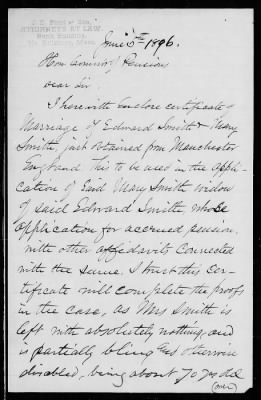 ATTORNEYS AT LAW,
June 5th 1896.
Hon Commr of Pension
Dear Sir.
I herewith Enclose certificate of
Marriage of Edward Smith & Mary
Smith just obtained from Manchester
England. This to be used in the Appli-
cation of Said Mary Smith widow
of said Edward Smith, whose
application for accrued pension,
with other affidavits Connected
with the same. I trust this Cer-
tificate will complete the proofs
in the case, as Mrs Smith is
left with absolutely nothing, and
is partially blind and otherwise
disabled, being about 70 yrs old
(over)